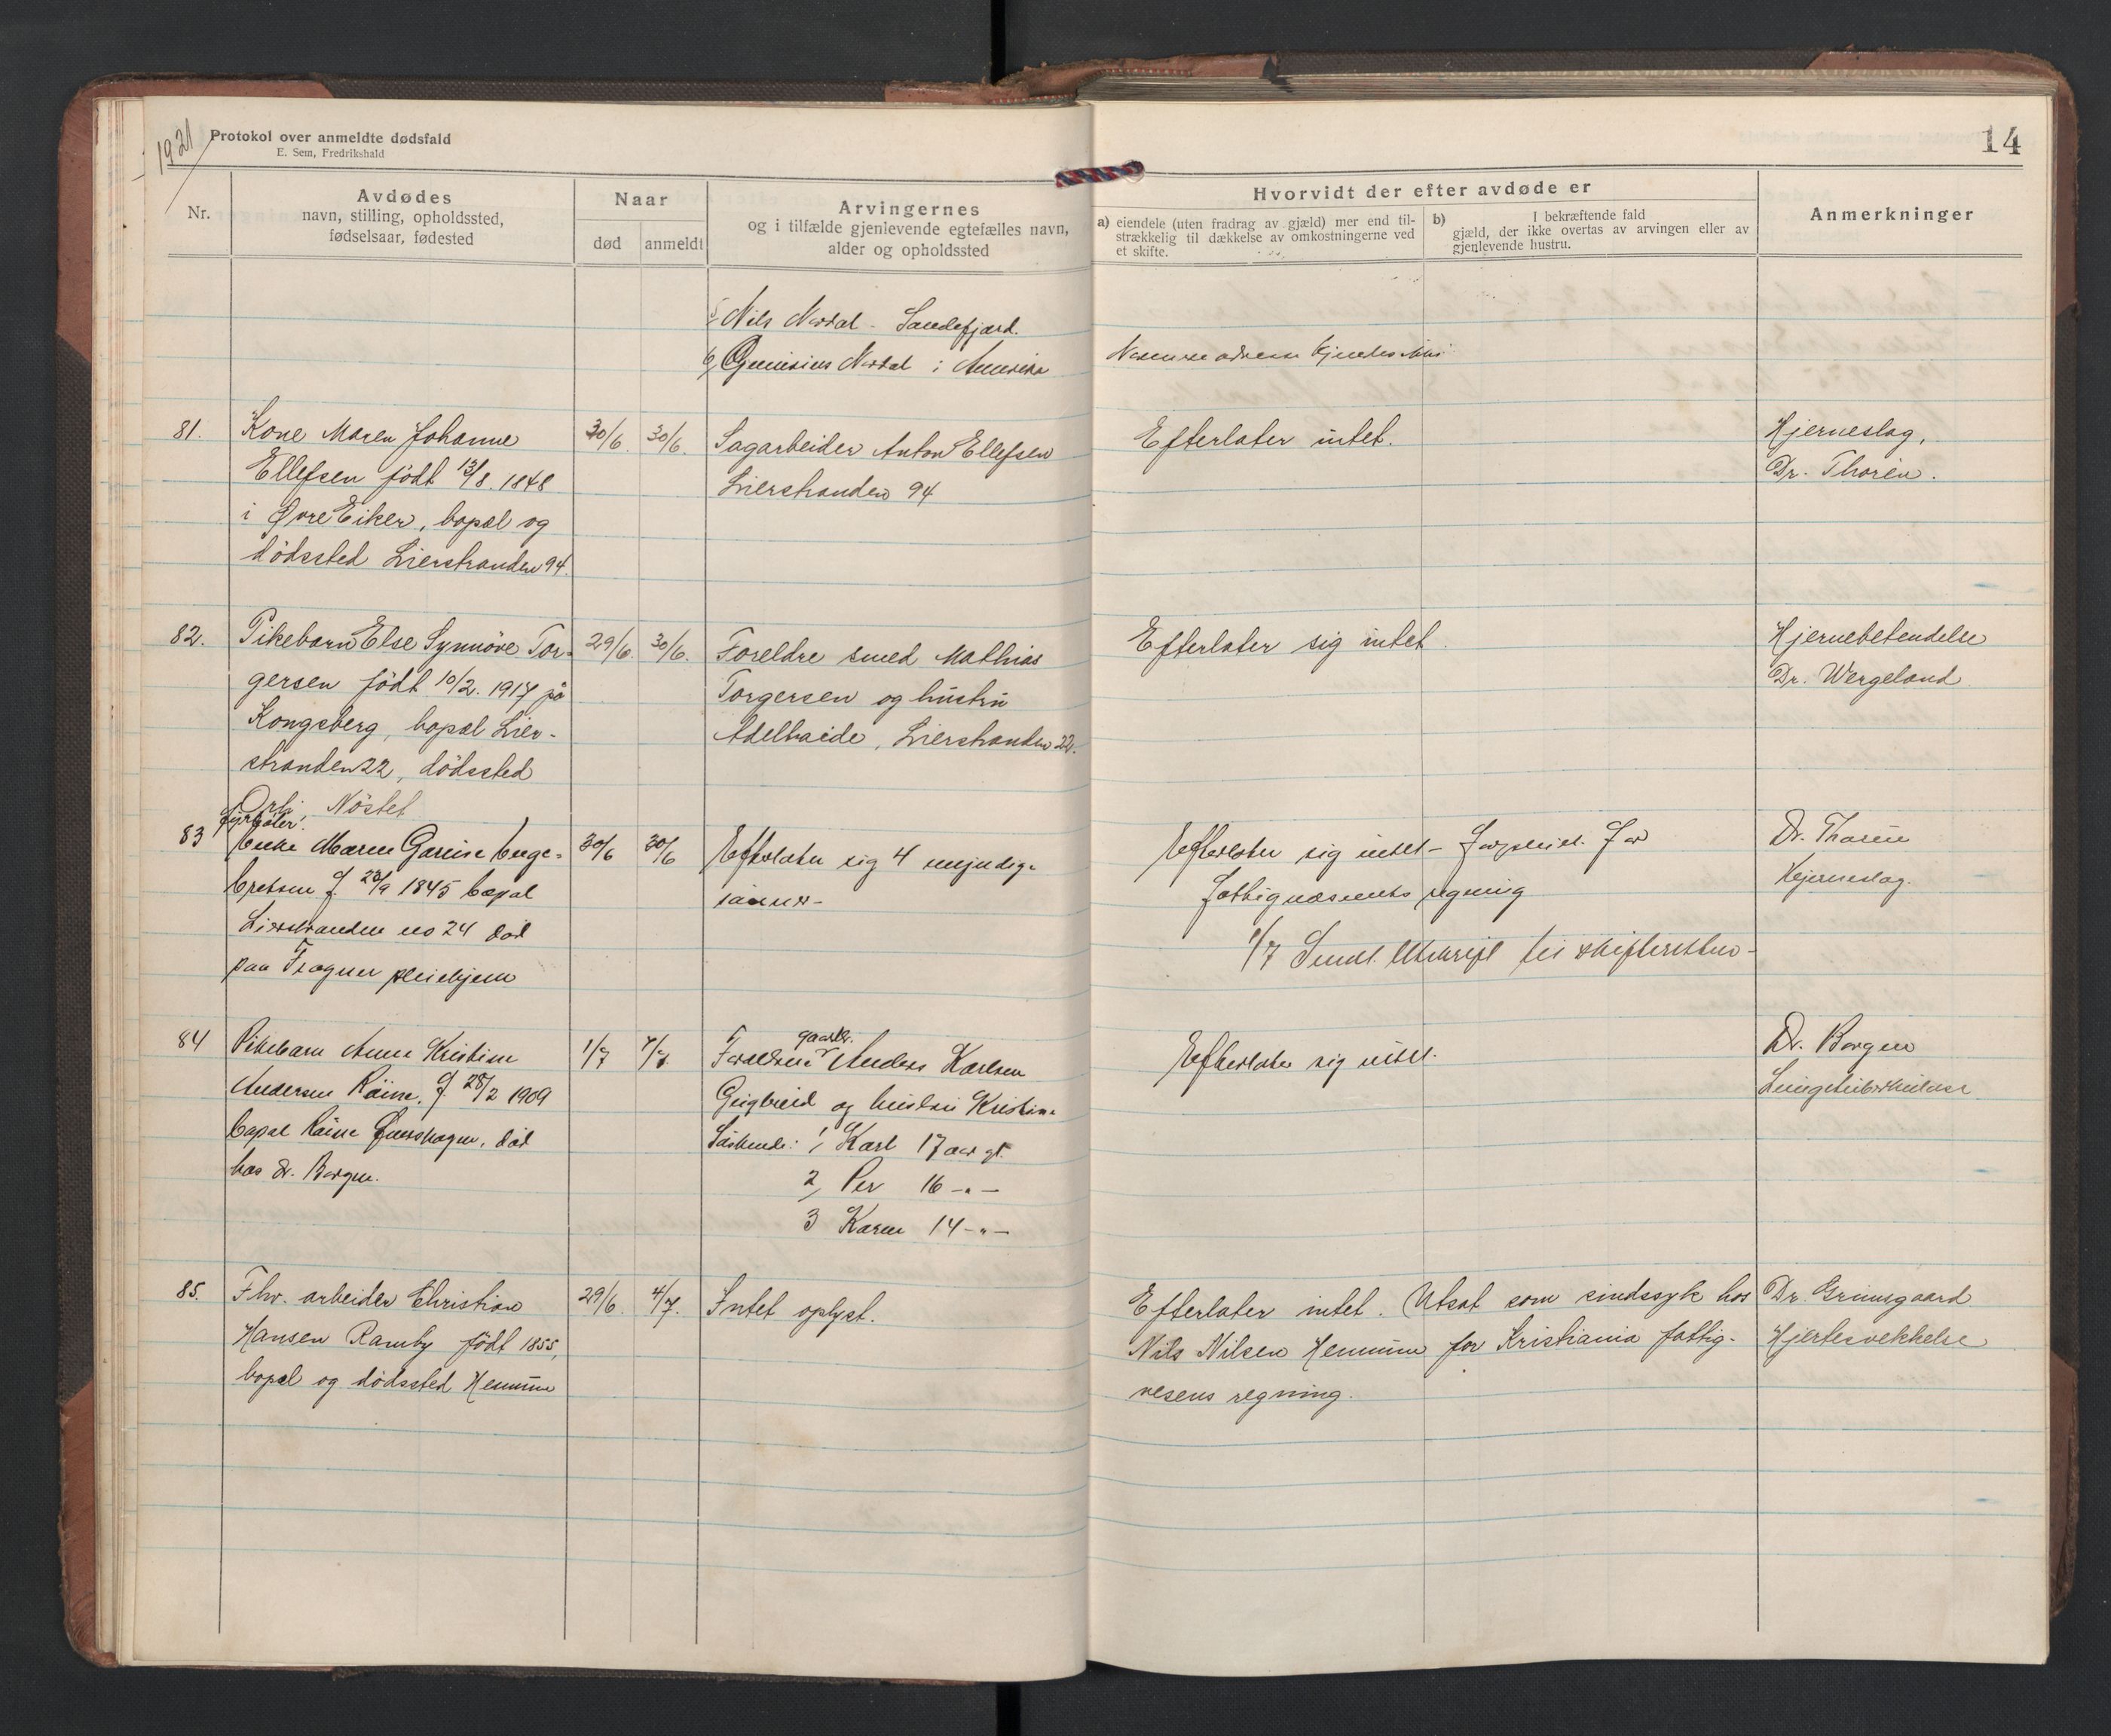 1921
Protokol over anmeldte dødsfald
E. Sem, Fredrikshald
14
Nr.
Avdødes
navn, stilling, opholdssted,
fødselsaar, fødested
Naar
død
anmeldt
Arvingernes
og i tilfælde gjenlevende egtefælles navn,
alder og opholdssted
Hvorvidt der efter avdøde er
a) eiendele (uten fradrag av gjæld) mer end til-
strækkelig til dækkelse av omkostningerne ved
et skifte.
b) I bekræftende fald
gjæld, der ikke overtas av arvingen eller av
gjenlevende hustru.
Anmerkninger
5/ Nils Nordal - Sandefjord.
6/ Nordal i Amerika
Nærmere adresse kjendes ikke
81.
Kone Maren Johanne
Ellefsen födt 13/8. 1848
i Øvre Eiker, bopæl og
dödssted Lierstranden 94.
30/6.
30/6.
Sagarbeider Anton Ellefsen
Lierstranden 94
Efterlater intet.
Hjerneslag,
Dr. Thorén.
82.
Pikebarn Else Synnöve Tor-
gersen födt 10/2. 1917 på
Kongsberg, bopæl Lier-
stranden 22, dödssted
Nöstet
29/6.
30/6.
Foreldre smed Mathias
Torgersen og hustru
Adelhaide, Lierstranden 22.
Efterlater sig intet.
Hjernebetendelse
Dr. Wergeland
83
fyrböter.
Enke Maren Garine Enge-
bretsen f. 23/9 1845 bopæl
Lierstranden no 24 död
paa Frogner pleiehjem
30/6
30/6
Efterlater sig 4 myndige
sönner -
Efterlater sig intet - Forpleiet for
fattigvæsenets regning
1/7 Sendt utskrift til skifteretten -
Dr. Thorén
Hjerneslag.
84
Pikebarn Anne Kristine
Andersen f. 28/2 1909
bopæl död
hos Dr. Borgen.
1/7
4/7
Forældrene gaardbr. Anders Karlsen
og hustru Kristine
Söskende: 1/ Karl 17 aar gl.
2/ Per 16 -"-
3 Karen 14 -"-
Efterlater sig intet.
Dr. Borgen
85.
Fhv. arbeider Christian
Hansen Ramby födt 1855,
bopæl og dödssted Hennum
29/6.
4/7.
Intet oplyst.
Efterlater intet. Utsat som sindssyk hos
Nils Nilsen Hennum for Kristiania fattig-
vesens regning.
Dr. Grimsgaard
Hjertesvekkelse